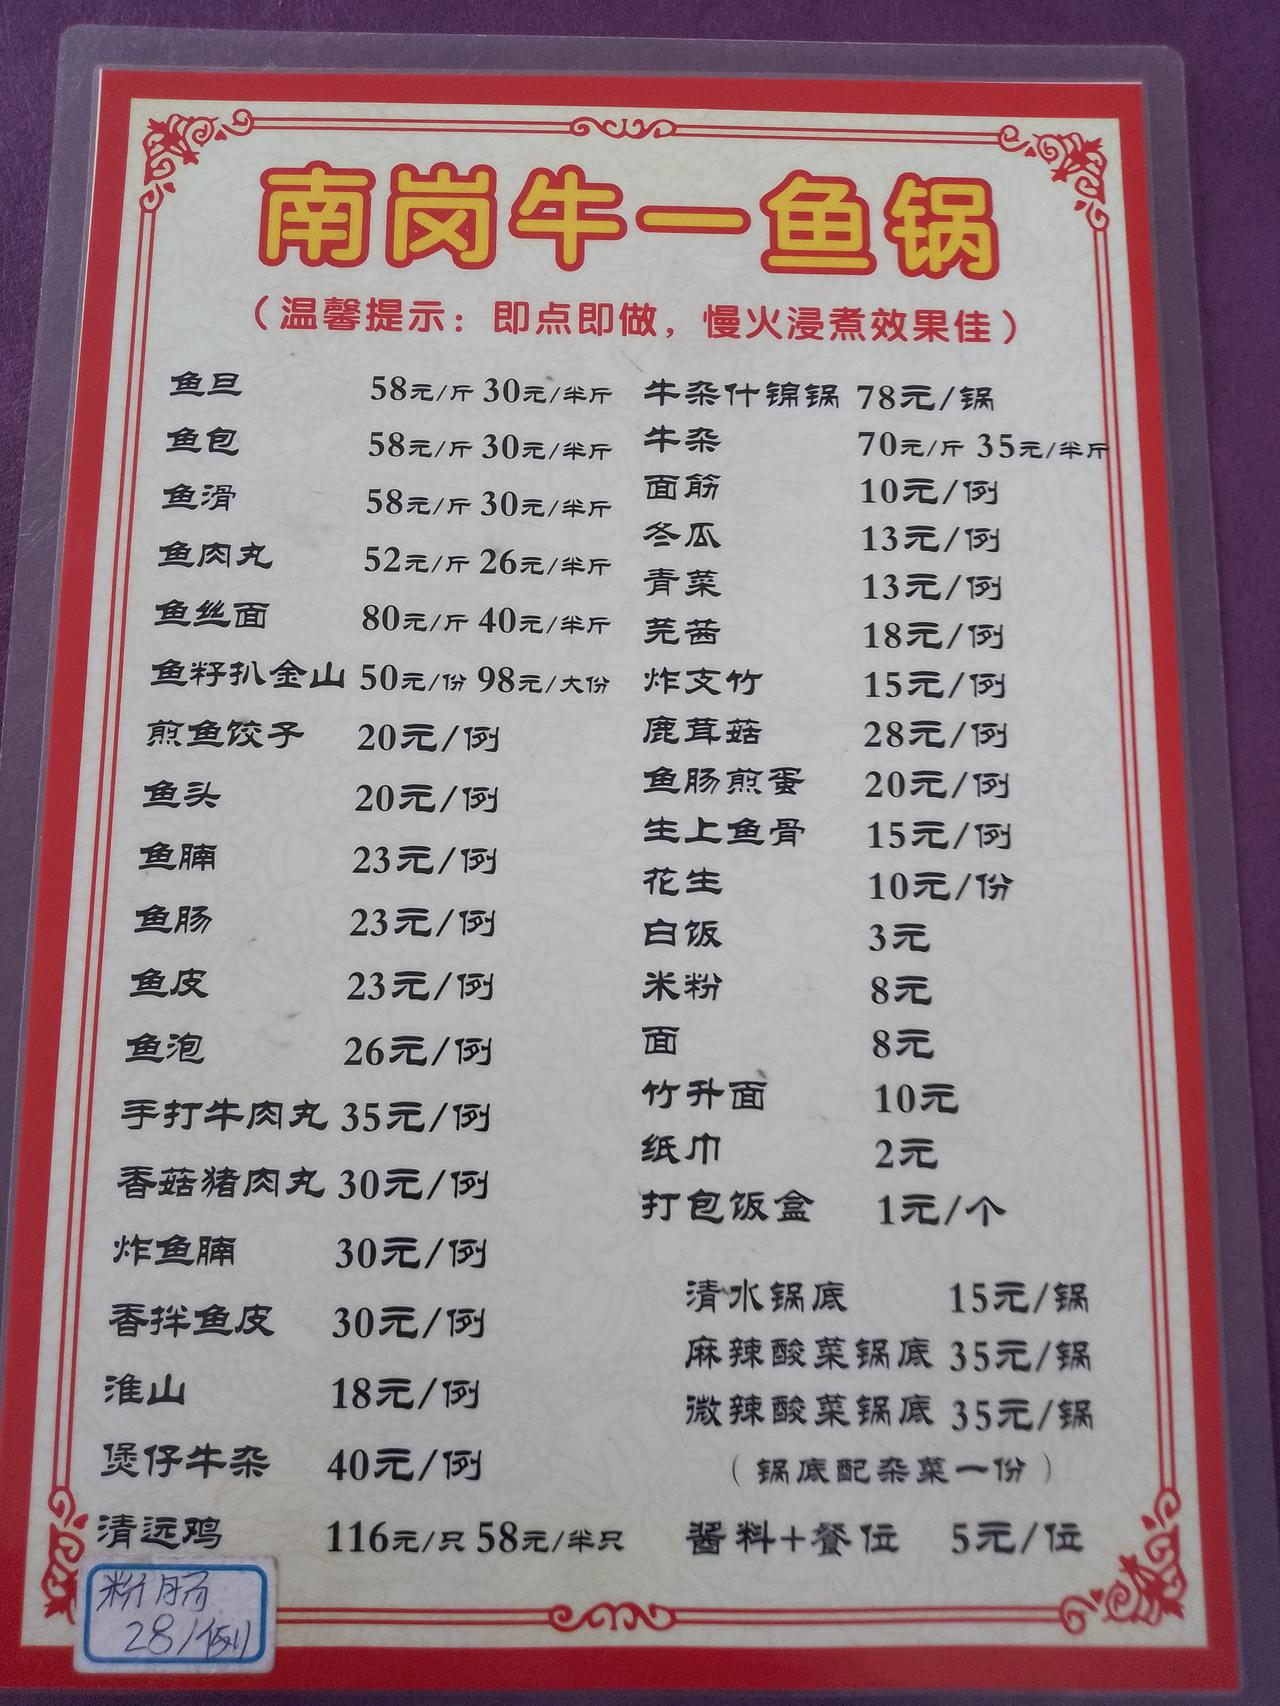 南岗牛一鱼锅
（温馨提示：即点即做，慢火浸煮效果佳）
鱼旦 58元/斤 30元/半斤
鱼包 58元/斤 30元/半斤
鱼滑 58元/斤 30元/半斤
鱼肉丸 52元/斤 26元/半斤
鱼丝面 80元/斤 40元/半斤
鱼籽扒金山 50元/份 98元/大份
煎鱼饺子 20元/例
鱼头 20元/例
鱼腩 23元/例
鱼肠 23元/例
鱼皮 23元/例
鱼泡 26元/例
手打牛肉丸 35元/例
香菇猪肉丸 30元/例
炸鱼腩 30元/例
香拌鱼皮 30元/例
淮山 18元/例
煲仔牛杂 40元/例
清远鸡 116元/只 58元/半只
粉肠
28/例
牛杂什锦锅 78元/锅
牛杂 70元/斤 35元/半斤
面筋 10元/例
冬瓜 13元/例
青菜 13元/例
芫茜 18元/例
炸支竹 15元/例
鹿茸菇 28元/例
鱼肠煎蛋 20元/例
生上鱼骨 15元/例
花生 10元/份
白饭 3元
米粉 8元
面 8元
竹升面 10元
纸巾 2元
打包饭盒 1元/个
清水锅底 15元/锅
麻辣酸菜锅底 35元/锅
微辣酸菜锅底 35元/锅
（锅底配杂菜一份）
酱料+餐位 5元/位